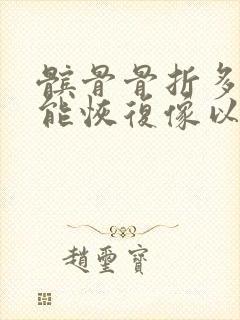 髕骨骨折多
能恢復像以
趙璽寶